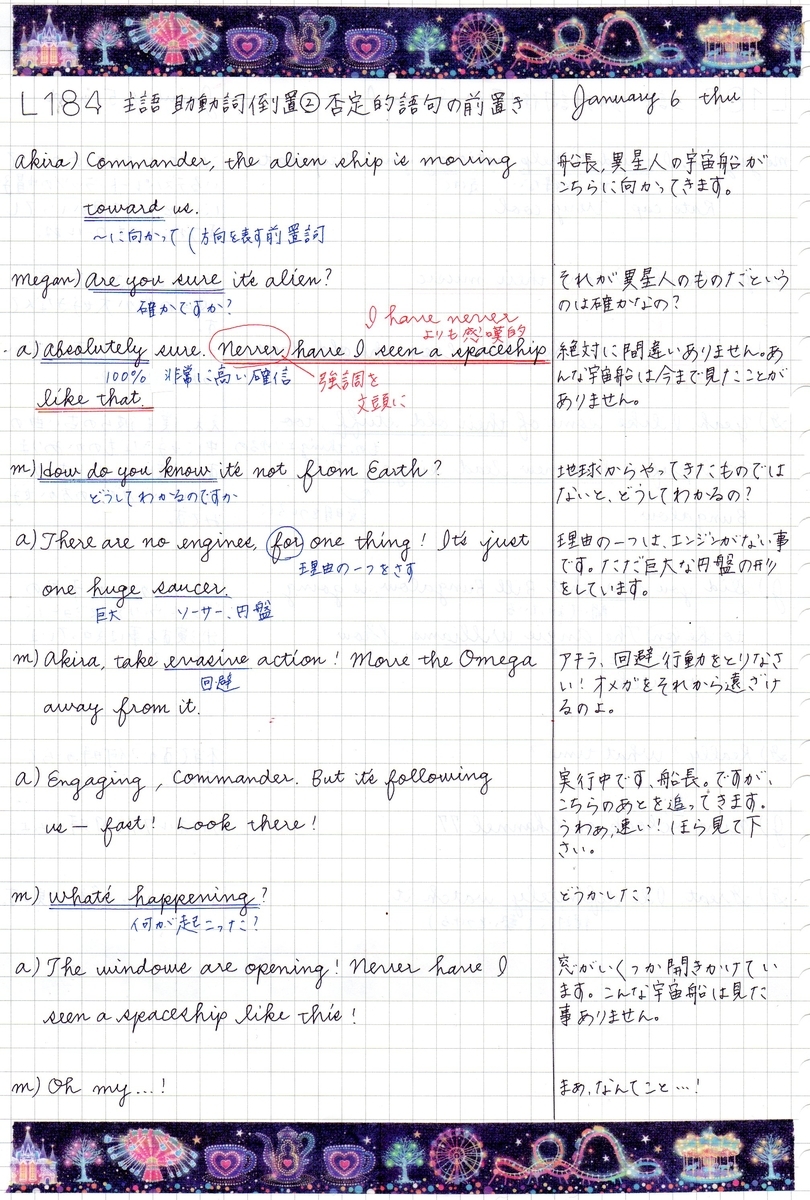 L184 主語 助動詞倒置② 否定的語句の前置き
January 6 thu
Akira) Commander, the alien ship is moving
toward us.
〜に向かって (方向を表す前置詞
船長、異星人の宇宙船が
こちらに向かってきます。
megan) Are you sure it's alien?
確かですか?
それが異星人のものだという
のは確かなの?
I have never
よりも感嘆的
a) Absolutely sure. Never have I seen a spaceship
100% 非常に高い確信
強調を
文頭に
like that.
絶対に間違いありません。あ
んな宇宙船は今まで見たことが
ありません。
m) How do you know it's not from Earth?
どうしてわかるのですか
地球からやってきたものでは
ないと、どうしてわかるの?
a) There are no engines, for one thing! It's just
理由の一つをさす
one huge saucer.
巨大 ソーサー、円盤
理由の一つは、エンジンがない事
です。ただ巨大な円盤の形
をしています。
m) Akira, take evasive action! Move the Omega
回避
away from it.
アキラ、回避行動をとりなさ
い!オメガをそれから遠ざけ
るのよ。
a) Engaging, Commander. But it's following
us — fast! Look there!
実行中です、船長。ですが、
こちらのあとを追ってきます。
うわぁ、速い!ほら見て下
さい。
m) What's happening?
何が起こった?
どうかした?
a) The windows are opening! Never have I
seen a spaceship like this!
窓がいくつか開きかけてい
ます。こんな宇宙船は見た
事ありません。
m) Oh my...!
まあ、なんてこと…!